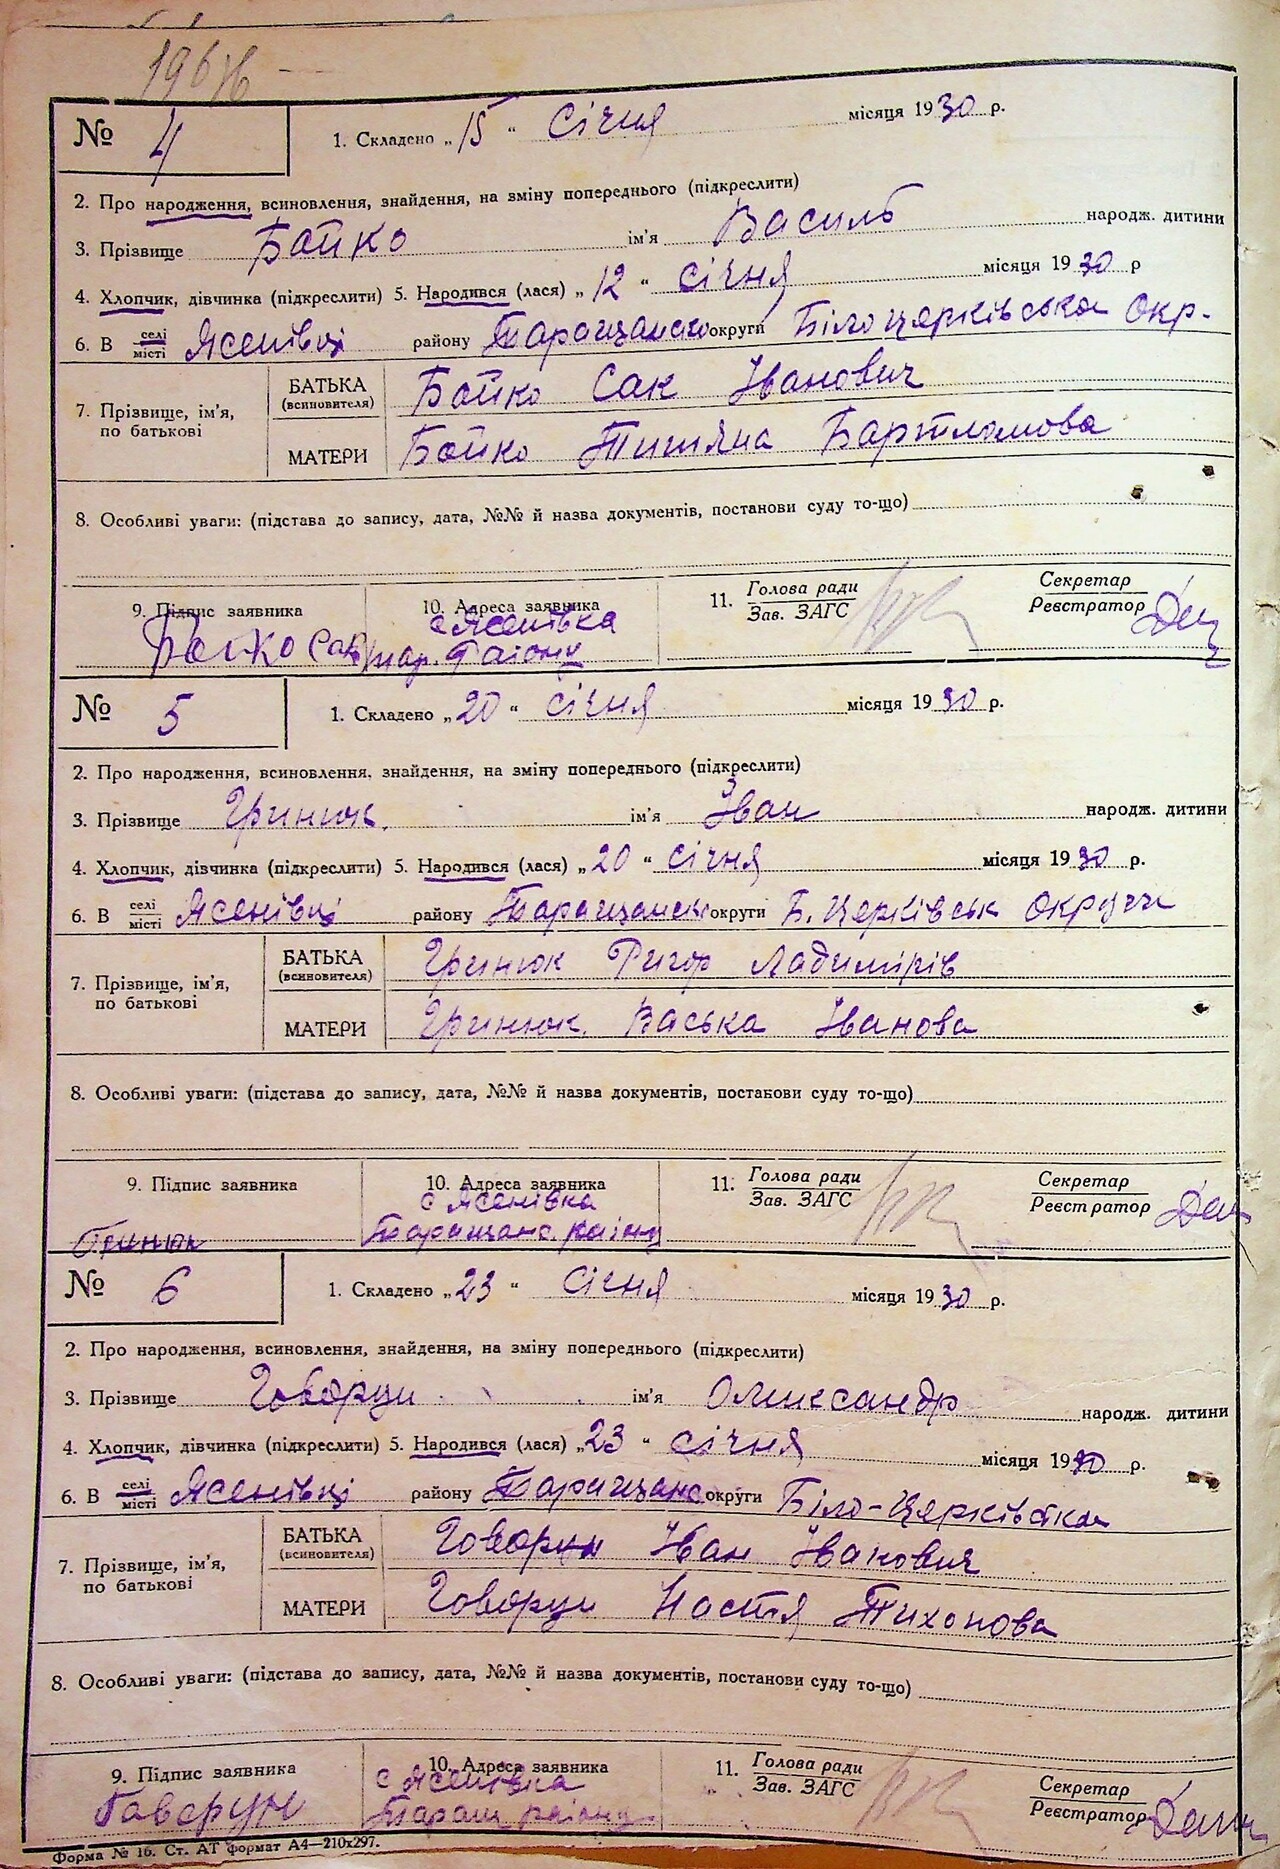 № 4 1. Складено „15“ Січня місяця 1930 р.
2. Про народження, всиновлення, знайдення, на зміну попереднього (підкреслити)
3. Прізвище Бойко ім'я Василь народж. дитини
4. Хлопчик, дівчинка (підкреслити) 5. Народився (лася) „12“ січня місяця 1930 р
6. В селі/місті Ясенівці району Таращансько округи Білоцерківська Окр.
7. Прізвище, ім'я, по батькові
БАТЬКА (всиновителя) Бойко Сак Іванович
МАТЕРИ Бойко Титяна Бартломова
8. Особливі уваги: (підстава до запису, дата, №№ й назва документів, постанови суду то-що)
9. Підпис заявника 10. Адреса заявника 11. Голова ради/Зав. ЗАГС Секретар/Реєстратор
Бойко Сак с Ясенівка
тар. Району
№ 5 1. Складено „20“ січня місяця 1930 р.
2. Про народження, всиновлення, знайдення, на зміну попереднього (підкреслити)
3. Прізвище Гринюк. ім'я Іван народж. дитини
4. Хлопчик, дівчинка (підкреслити) 5. Народився (лася) „20“ січня місяця 1930 р.
6. В селі/місті Ясенівці району Таращанськ округи Б. Церківськ округи
7. Прізвище, ім'я, по батькові
БАТЬКА (всиновителя) Гринюк Ригор Ладимірів
МАТЕРИ Гринюк. Васька Іванова
8. Особливі уваги: (підстава до запису, дата, №№ й назва документів, постанови суду то-що)
9. Підпис заявника 10. Адреса заявника 11. Голова ради/Зав. ЗАГС Секретар/Реєстратор
с Ясенівка
Гринюк Таращанс. району
№ 6 1. Складено „23“ Січня місяця 1930 р.
2. Про народження, всиновлення, знайдення, на зміну попереднього (підкреслити)
3. Прізвище Говорун ім'я Олександр народж. дитини
4. Хлопчик, дівчинка (підкреслити) 5. Народився (лася) „23“ січня місяця 1930 р.
6. В селі/місті Ясенівці району Таращанс округи Біло-Церківська
7. Прізвище, ім'я, по батькові
БАТЬКА (всиновителя) Говорун Іван Іванович
МАТЕРИ Говорун Настя Тихонова
8. Особливі уваги: (підстава до запису, дата, №№ й назва документів, постанови суду то-що)
9. Підпис заявника 10. Адреса заявника 11. Голова ради/Зав. ЗАГС Секретар/Реєстратор
с Ясенівка
Говорун Таращ району
Форма № 16. Ст. АТ формат А4—210х297.